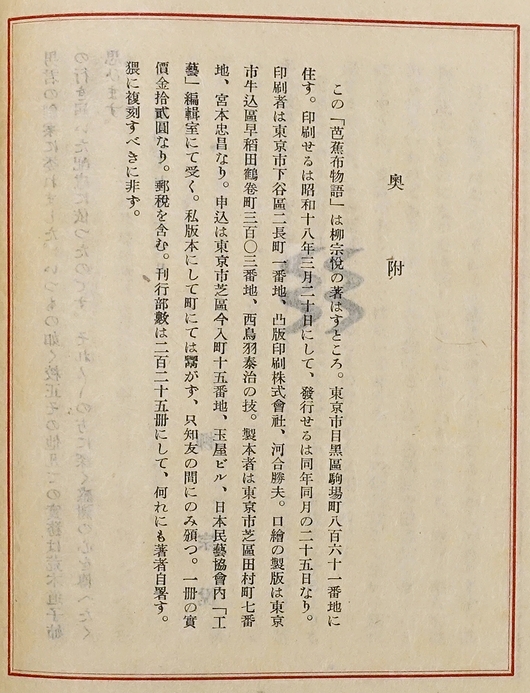 奥附
この「芭蕉布物語」は柳宗悅の著はすところ。東京市目黑區駒場町八百六十一番地に
住す。印刷せるは昭和十八年三月二十日にして、發行せるは同年同月の二十五日なり。
印刷者は東京市下谷區二長町一番地、凸版印刷株式會社、河合勝夫。口繪の製版は東京
市牛込區早稻田鶴卷町三百〇三番地、西鳥羽泰治の技。製本者は東京市芝區田村町七番
地、宮本忠昌なり。申込は東京市芝區今入町十五番地、玉屋ビル、日本民藝協會內「工
藝」編輯室にて受く。私版本にして町にては鬻がず、只知友の間にのみ頒つ。一冊の實
價金拾貳圓なり。郵稅を含む。刊行部數は二百二十五冊にして、何れにも著者自署す。
猥に複刻すべきに非ず。